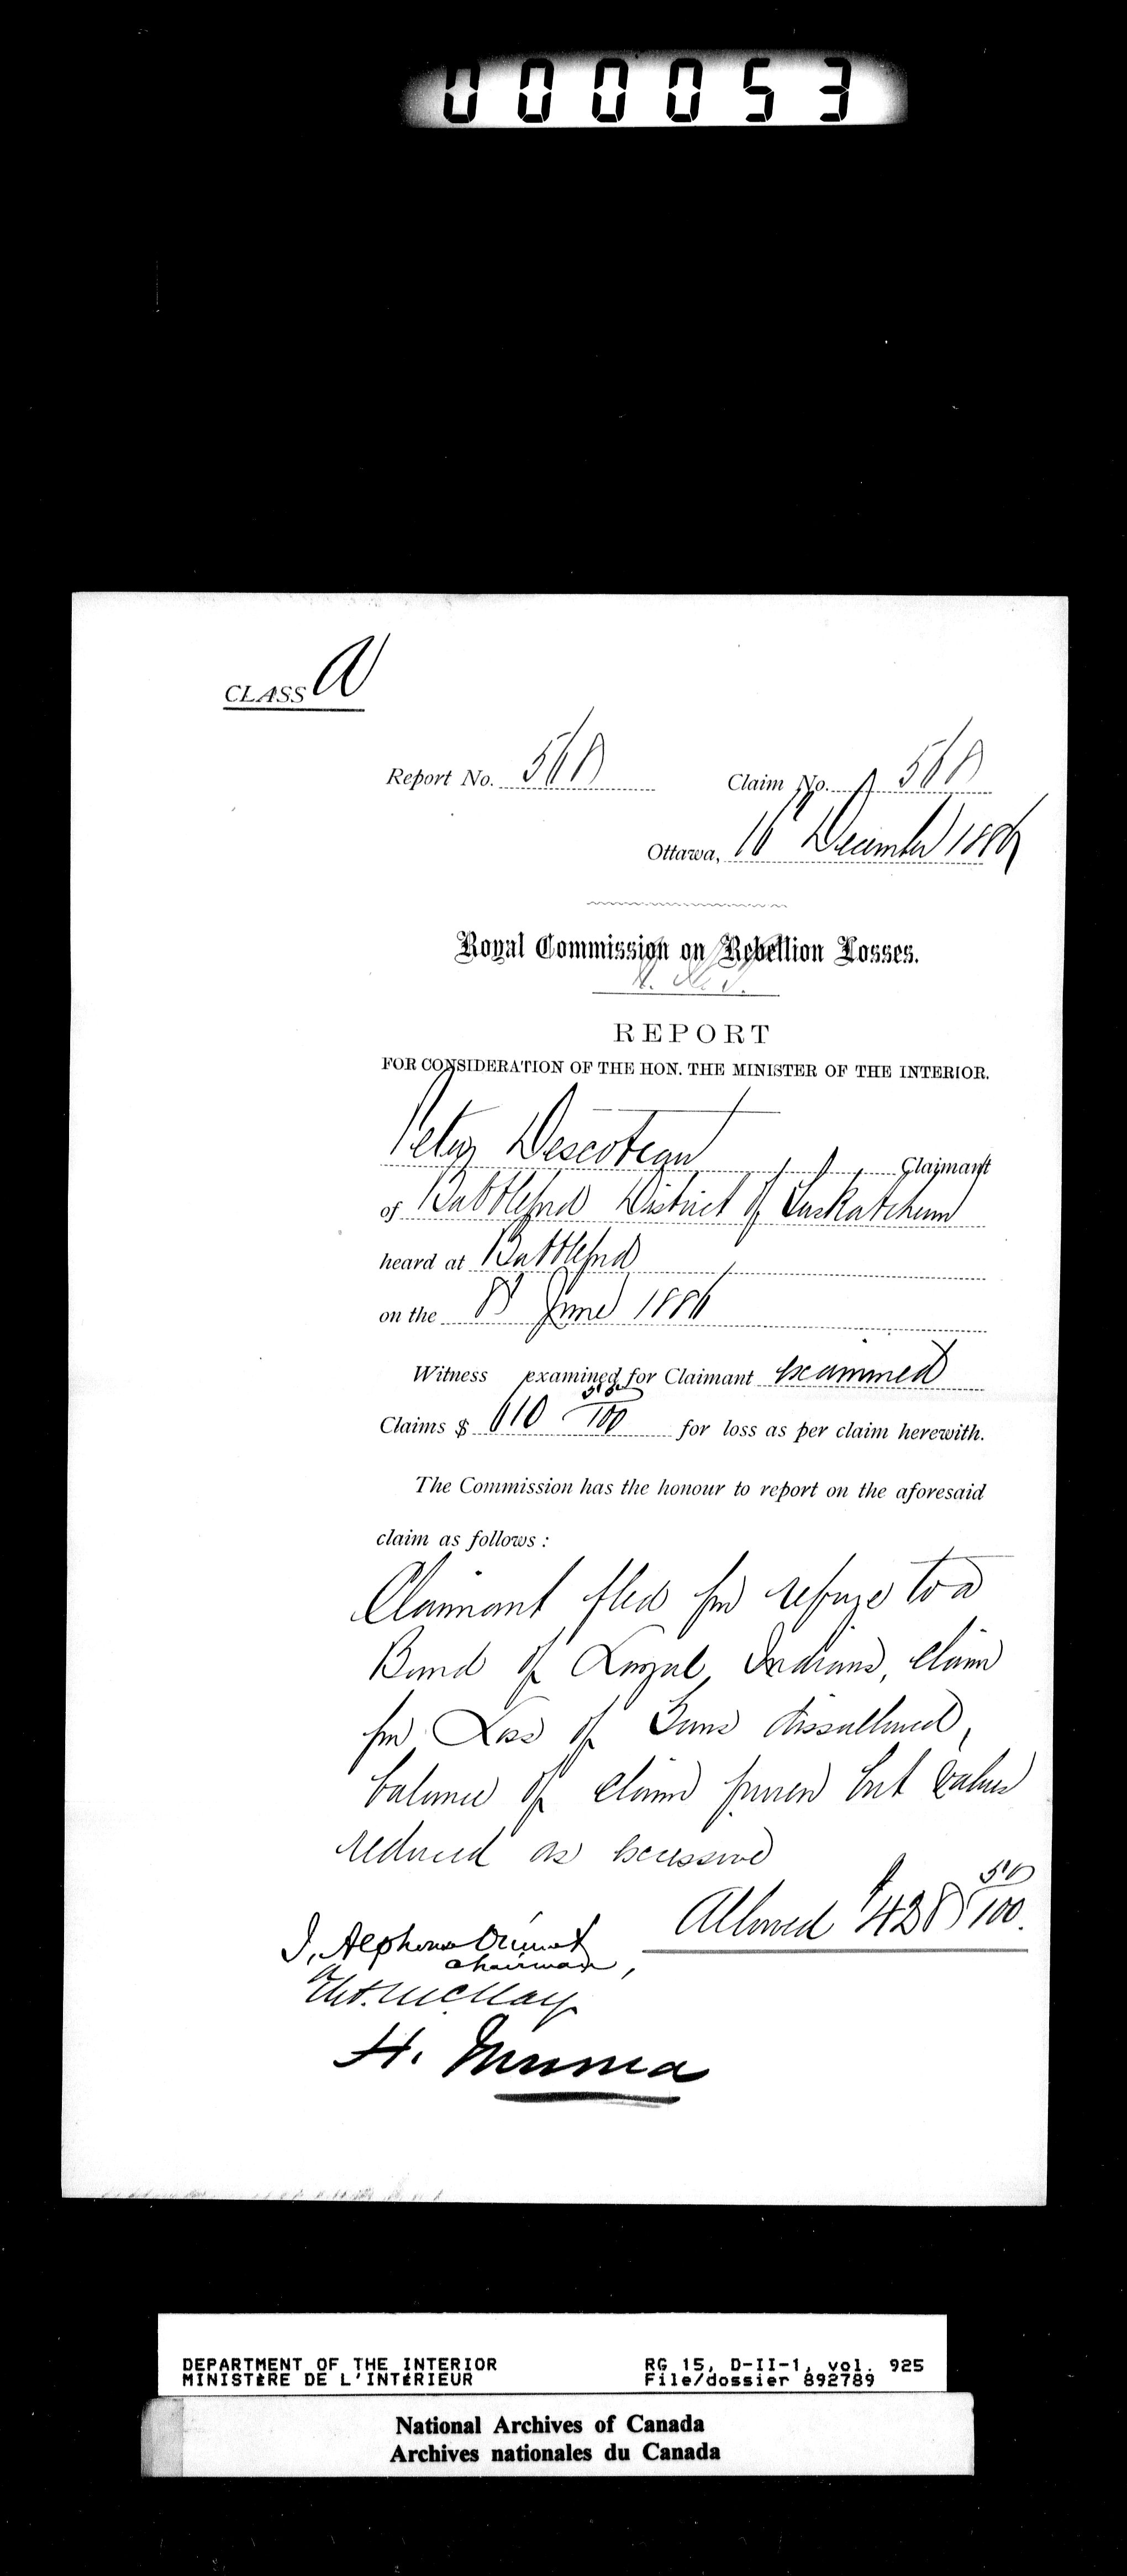 000053
CLASS A
Report No. 568 Claim No. 568
Ottawa, 16 December 1886
Royal Commission on Rebellion Losses.
REPORT
FOR CONSIDERATION OF THE HON. THE MINISTER OF THE INTERIOR.
Peter Descoteau Claimant
of Battleford District of Saskatchewan
heard at Battleford
on the 8 June 1886
Witness examined for Claimant Examined
Claims $ 610 50/100 for loss as per claim herewith.
The Commission has the honour to report on the aforesaid
claim as follows:
Claimant fled for refuge to a
Band of Loyal Indians, claim
for Loss of Guns dissallowed,
balance of claim proven but values
reduced as excessive
Allowed $428 50/100.
J. Alphonse Ouimet
Chairman,
Tho. McKay
H. Muma
DEPARTMENT OF THE INTERIOR RG 15, D-II-1, vol. 925
MINISTÈRE DE L'INTÉRIEUR File/dossier 892789
National Archives of Canada
Archives nationales du Canada